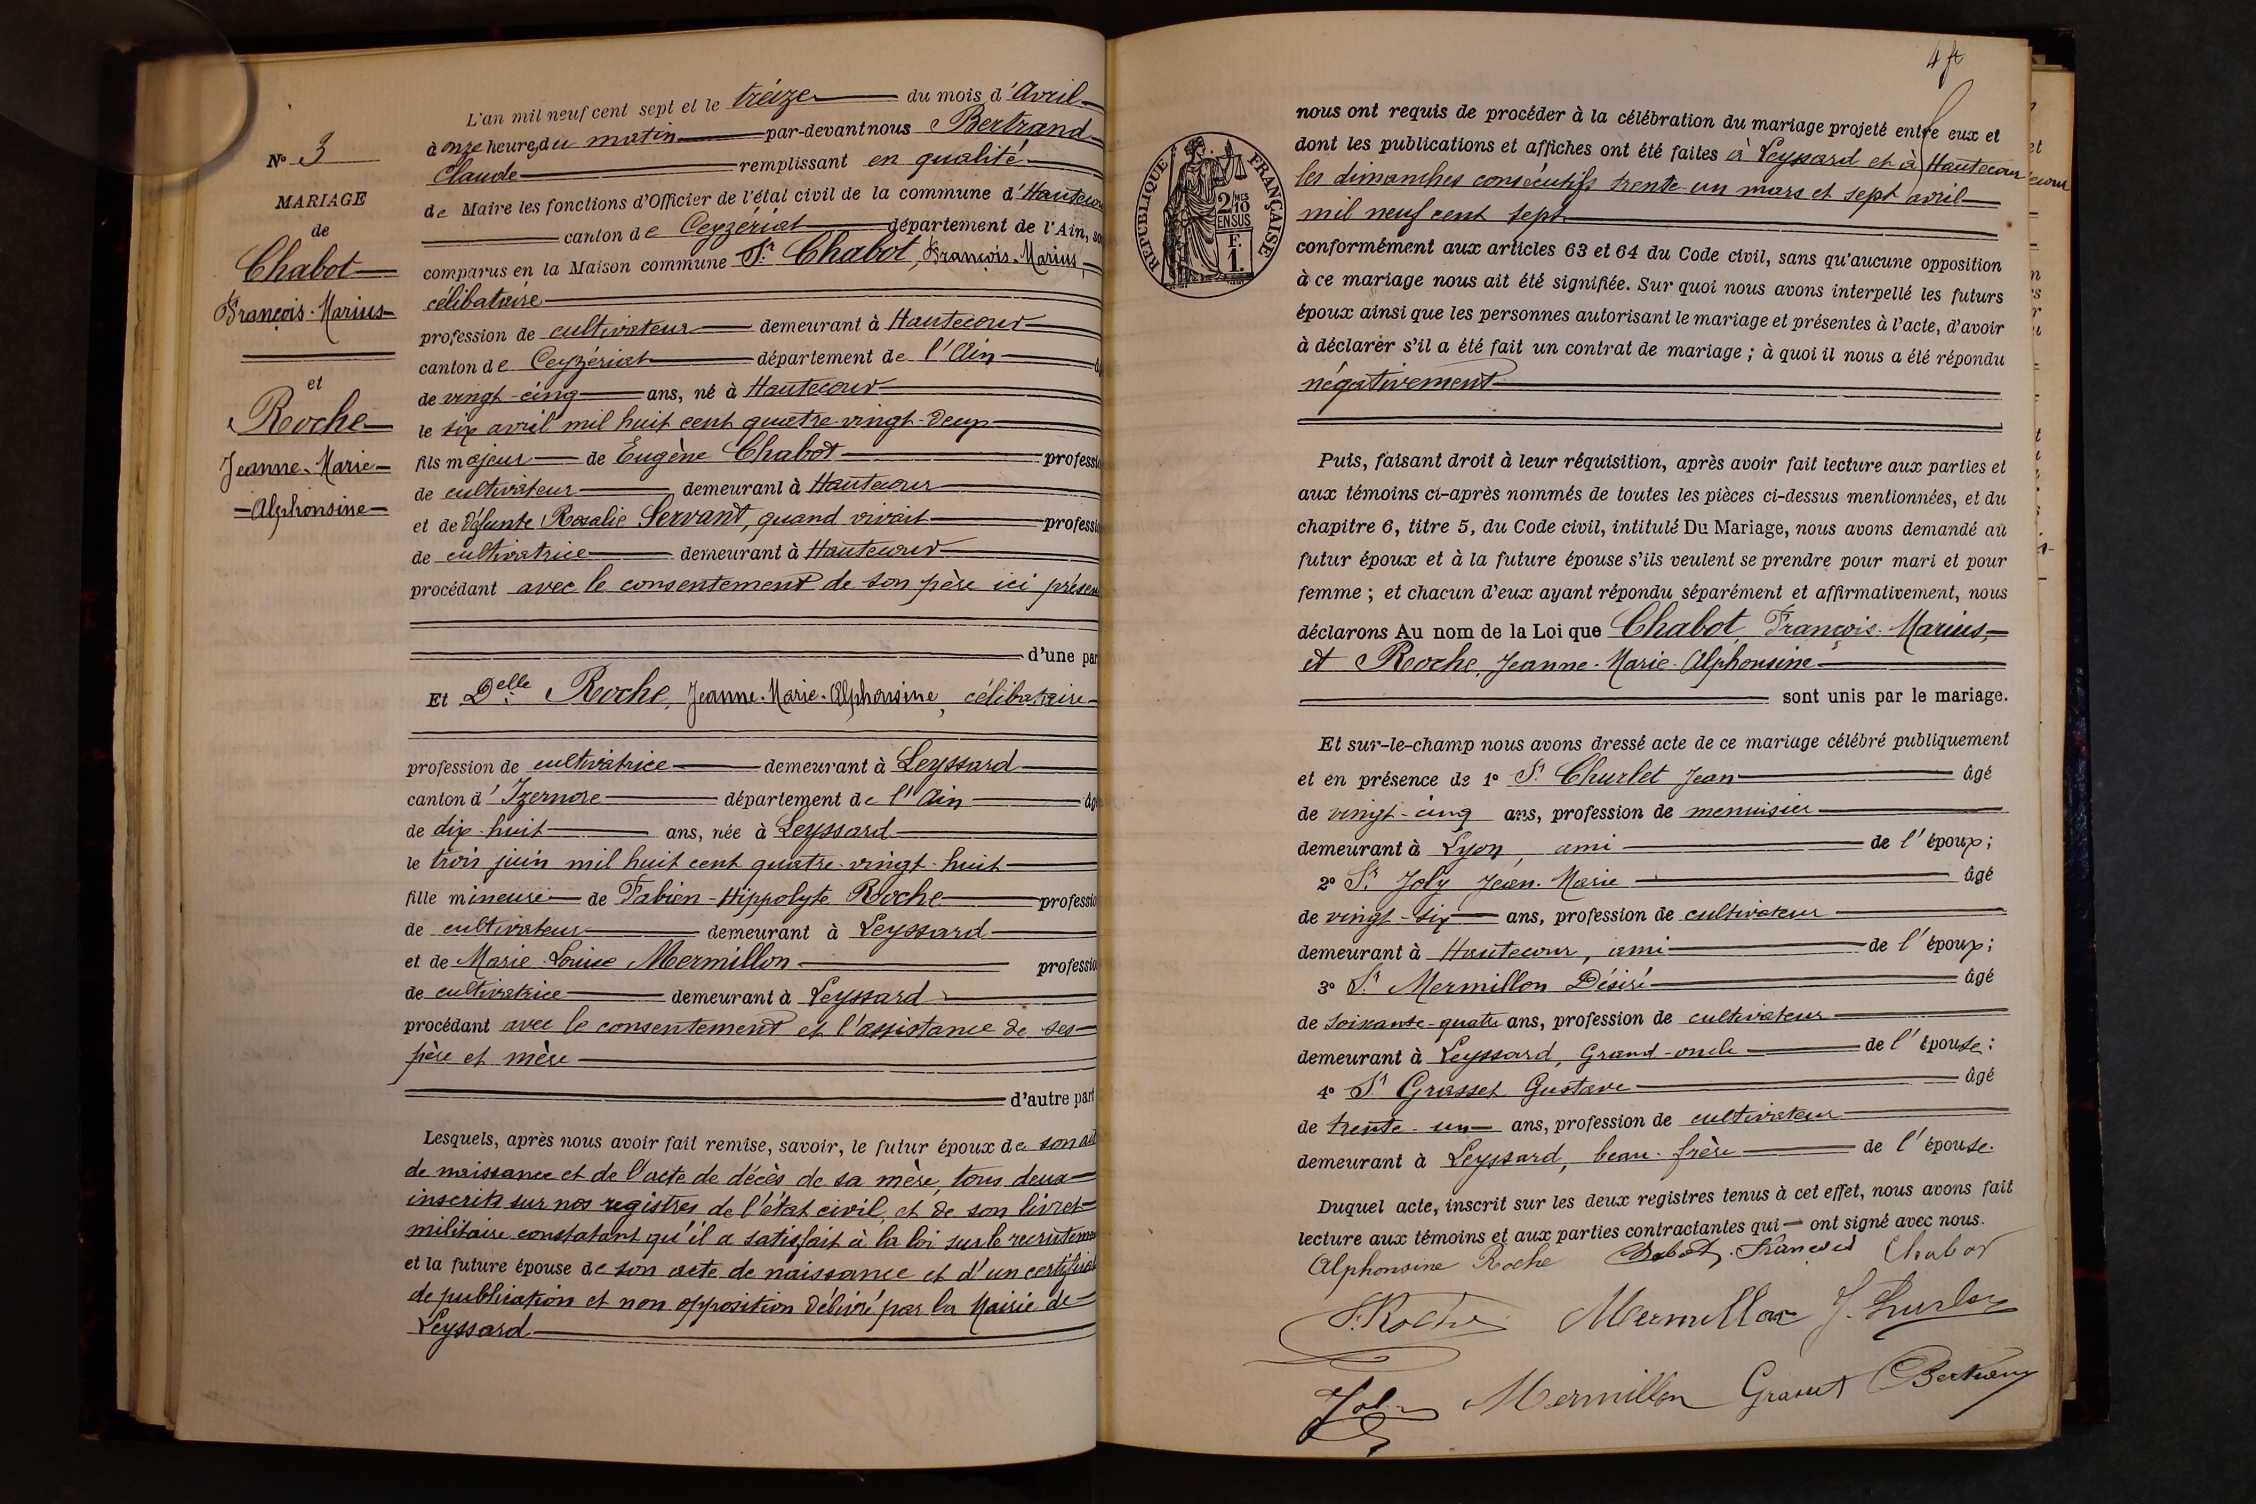 N° 3
MARIAGE
de
Chabot
François-Marius
et
Roche
Jeanne-Marie-
Alphonsine
L'an mil neuf cent sept et le treize du mois d'Avril
à onze heures du matin par-devant nous Bertrand
Claude remplissant en qualité
de Maire les fonctions d'Officier de l'état civil de la commune d'Hautecour
canton de Ceyzériat département de l'Ain, so
comparus en la Maison commune Sr Chabot, François-Marius,
célibataire
profession de cultivateur demeurant à Hautecour
canton de Ceyzériat département de l'Ain
de vingt-cinq ans, né à Hautecour
le six avril mil huit cent quatre-vingt-deux
fils majeur de Eugène Chabot professi
de cultivateur demeurant à Hautecour
et de défunte Rosalie Servant, quand vivait professi
de cultivatrice demeurant à Hautecour
procédant avec le consentement de son père ici présen
d'une par
Et Delle Roche, Jeanne-Marie-Alphonsine, célibataire
profession de cultivatrice demeurant à Leyssard
canton d'Izernore département de l'Ain âg
de dix-huit ans, née à Leyssard
le trois juin mil huit cent quatre-vingt-huit
fille mineure de Fabien-Hippolyte Roche professio
de cultivateur demeurant à Leyssard
et de Marie-Louise Mermillon professio
de cultivatrice demeurant à Leyssard
procédant avec le consentement et l'assistance de ses
père et mère
d'autre part
Lesquels, après nous avoir fait remise, savoir, le futur époux de son acte
de naissance et de l'acte de décès de sa mère, tous deux
inscrits sur nos registres de l'état civil, et de son livret
militaire constatant qu'il a satisfait à la loi sur le recrutement
et la future épouse de son acte de naissance et d'un certificat
de publication et non opposition délivré par la Mairie de
Leyssard
4 ft
RÉPUBLIQUE FRANÇAISE
2/10 MES
EN SUS
F.
1.
nous ont requis de procéder à la célébration du mariage projeté entre eux et
dont les publications et affiches ont été faites à Leyssard et à Hautecour
les dimanches consécutifs trente-un mars et sept avril
mil neuf cent sept
conformément aux articles 63 et 64 du Code civil, sans qu'aucune opposition
à ce mariage nous ait été signifiée. Sur quoi nous avons interpellé les futurs
époux ainsi que les personnes autorisant le mariage et présentes à l'acte, d'avoir
à déclarer s'il a été fait un contrat de mariage ; à quoi il nous a été répondu
négativement
Puis, faisant droit à leur réquisition, après avoir fait lecture aux parties et
aux témoins ci-après nommés de toutes les pièces ci-dessus mentionnées, et du
chapitre 6, titre 5, du Code civil, intitulé Du Mariage, nous avons demandé au
futur époux et à la future épouse s'ils veulent se prendre pour mari et pour
femme ; et chacun d'eux ayant répondu séparément et affirmativement, nous
déclarons Au nom de la Loi que Chabot, François-Marius,
et Roche, Jeanne-Marie-Alphonsine
sont unis par le mariage.
Et sur-le-champ nous avons dressé acte de ce mariage célébré publiquement
et en présence de 1° Sr Churlet Jean âgé
de vingt-cinq ans, profession de menuisier
demeurant à Lyon, ami de l'époux;
2° Sr Joly Jean-Marie âgé
de vingt-six ans, profession de cultivateur
demeurant à Hautecour, ami de l'époux;
3° Sr Mermillon Désiré âgé
de soixante-quatre ans, profession de cultivateur
demeurant à Leyssard, Grand-oncle de l'épouse:
4° Sr Grasset Gustave âgé
de trente-un ans, profession de cultivateur
demeurant à Leyssard, beau-frère de l'épouse.
Duquel acte, inscrit sur les deux registres tenus à cet effet, nous avons fait
lecture aux témoins et aux parties contractantes qui ont signé avec nous.
Alphonsine Roche Chabot François Chabot
F. Roche Mermillon J. Churlet
Joly Mermillon Grasset Bertrand